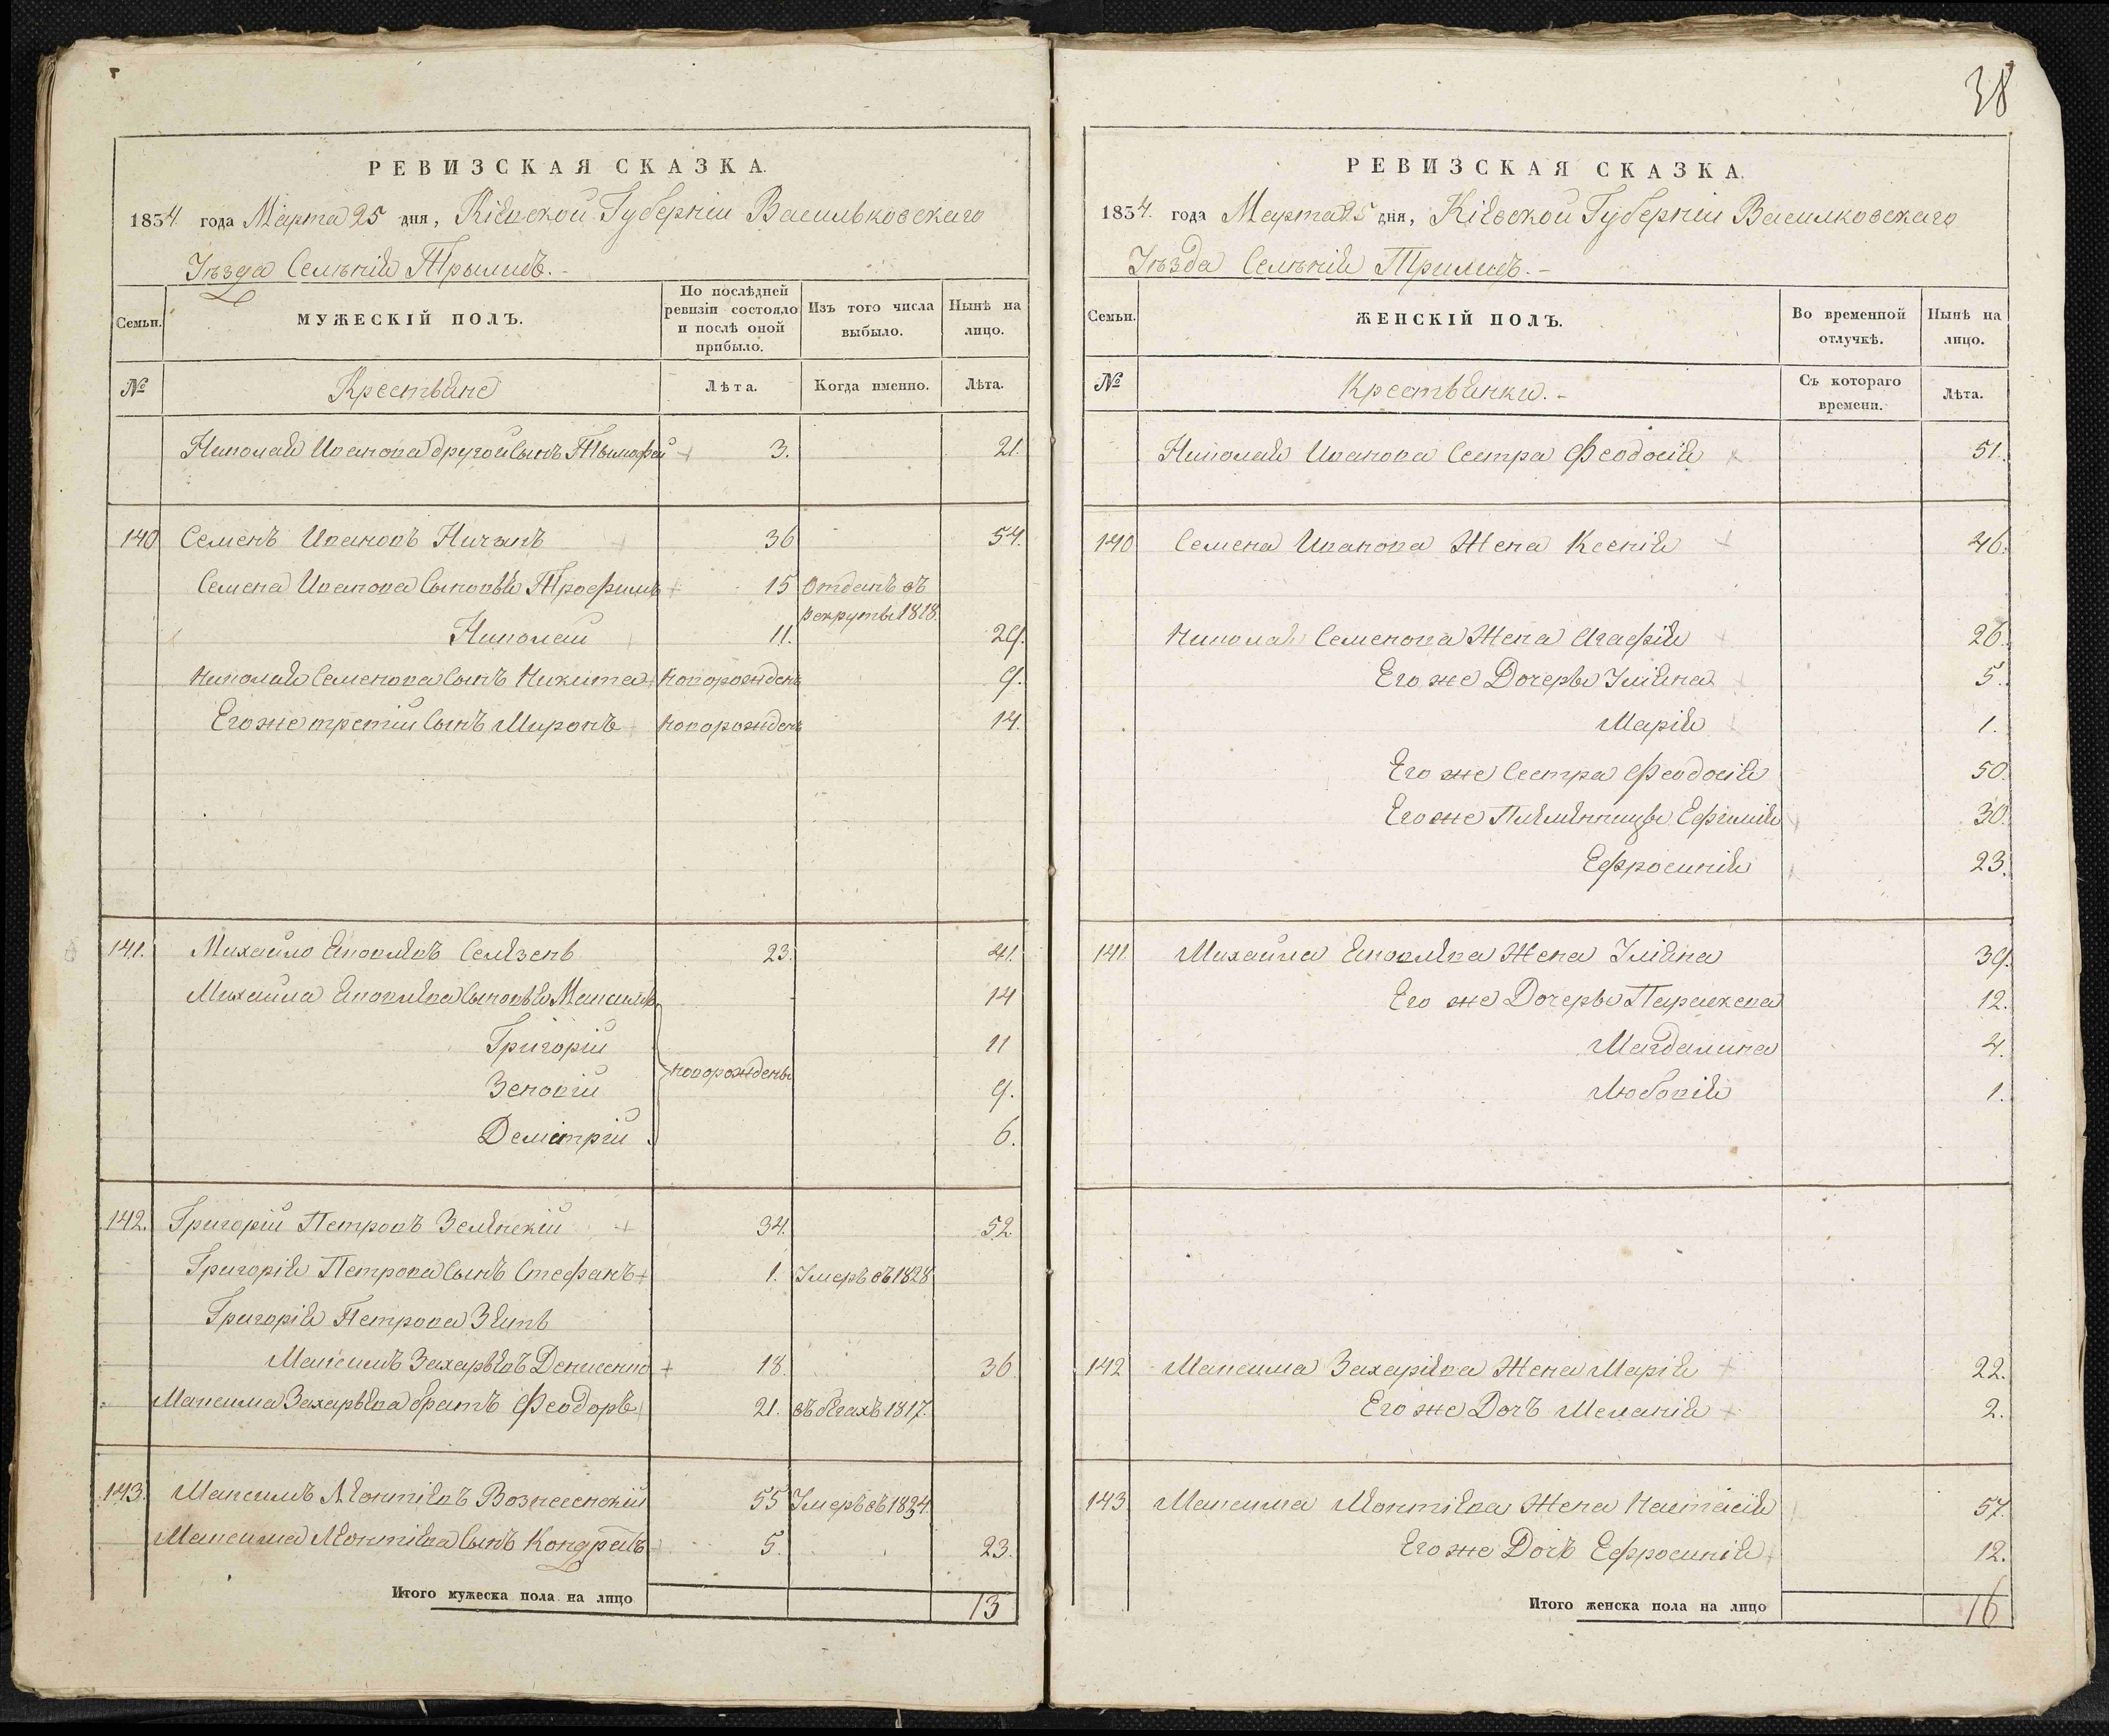 38
РЕВИЗСКАЯ СКАЗКА.
1834 года Марта 25 дня, Кіевской Губерніи Васильковскаго
Уѣзда Селѣнія
Семьи.
МУЖЕСКІЙ ПОЛЪ.
По послѣдней ревизіи состояло и послѣ оной прибыло.
Изъ того числа выбыло.
Нынѣ на лицо.
№
Крестьяне
Лѣта.
Когда именно.
Лѣта.
Николая Иванова другой сынъ Тымофей 3. 21.
140 Семенъ Ивановъ 36 54.
Семена Иванова сыновья Трофимъ 15 Отданъ въ
рекруты 1818.
Николай 11. 29.
Николая Семенова сынъ Никита новорожденъ 9.
Его же третій сынъ Миронъ новорожденъ 14.
141. Михайло Яковлевъ 23. 41.
Михайла Яковлева сыновья Максимъ 14
Григорій 11
новорождены
Зеновій 9.
Демитрій 6.
142. Григорій Петровъ Зелинскій 34. 52
Григорія Петрова сынъ Стефанъ 1. Умеръ въ 1828
Григорія Петрова Зять
Максимъ Захарьевъ Денисенко 18. 36
Максима Захарьева братъ Феодоръ 21. въ бегахъ 1817.
143. Максимъ Леонтіевъ Вознесенскій 55 Умеръ въ 1834.
Максима Леонтіева сынъ Кондратъ 5. 23.
Итого мужеска пола на лицо 13
РЕВИЗСКАЯ СКАЗКА.
1834. года Марта 25 дня, Кіевской Губерніи Василковскаго
Уѣзда Селѣнія
Семьи.
ЖЕНСКІЙ ПОЛЪ.
Во временной отлучкѣ.
Нынѣ на лицо.
№
Крестьянки.-
Съ котораго времени.
Лѣта.
Николая Иванова сестра Феодосія 51.
140 Семена Иванова Жена Ксенія 46.
Николая Семенова Жена Агафія 26.
Его же Дочеры Уліяна 5.
Марія 1.
Его же сестра Феодосія 50.
Его же Племянницы Ефимія 30.
Ефросинія 23.
141. Михайла Яковлева Жена Уліяна 39.
Его же Дочеры Параскева 12.
Магдалина 4.
Любовія 1.
142 Максима Захаріева Жена Марія 22.
Его же Дочъ Меланія 2.
143 Максима Леонтіева Жена Настасія 57.
Его же Дочъ Ефросинія 12.
Итого женска пола на лицо 16